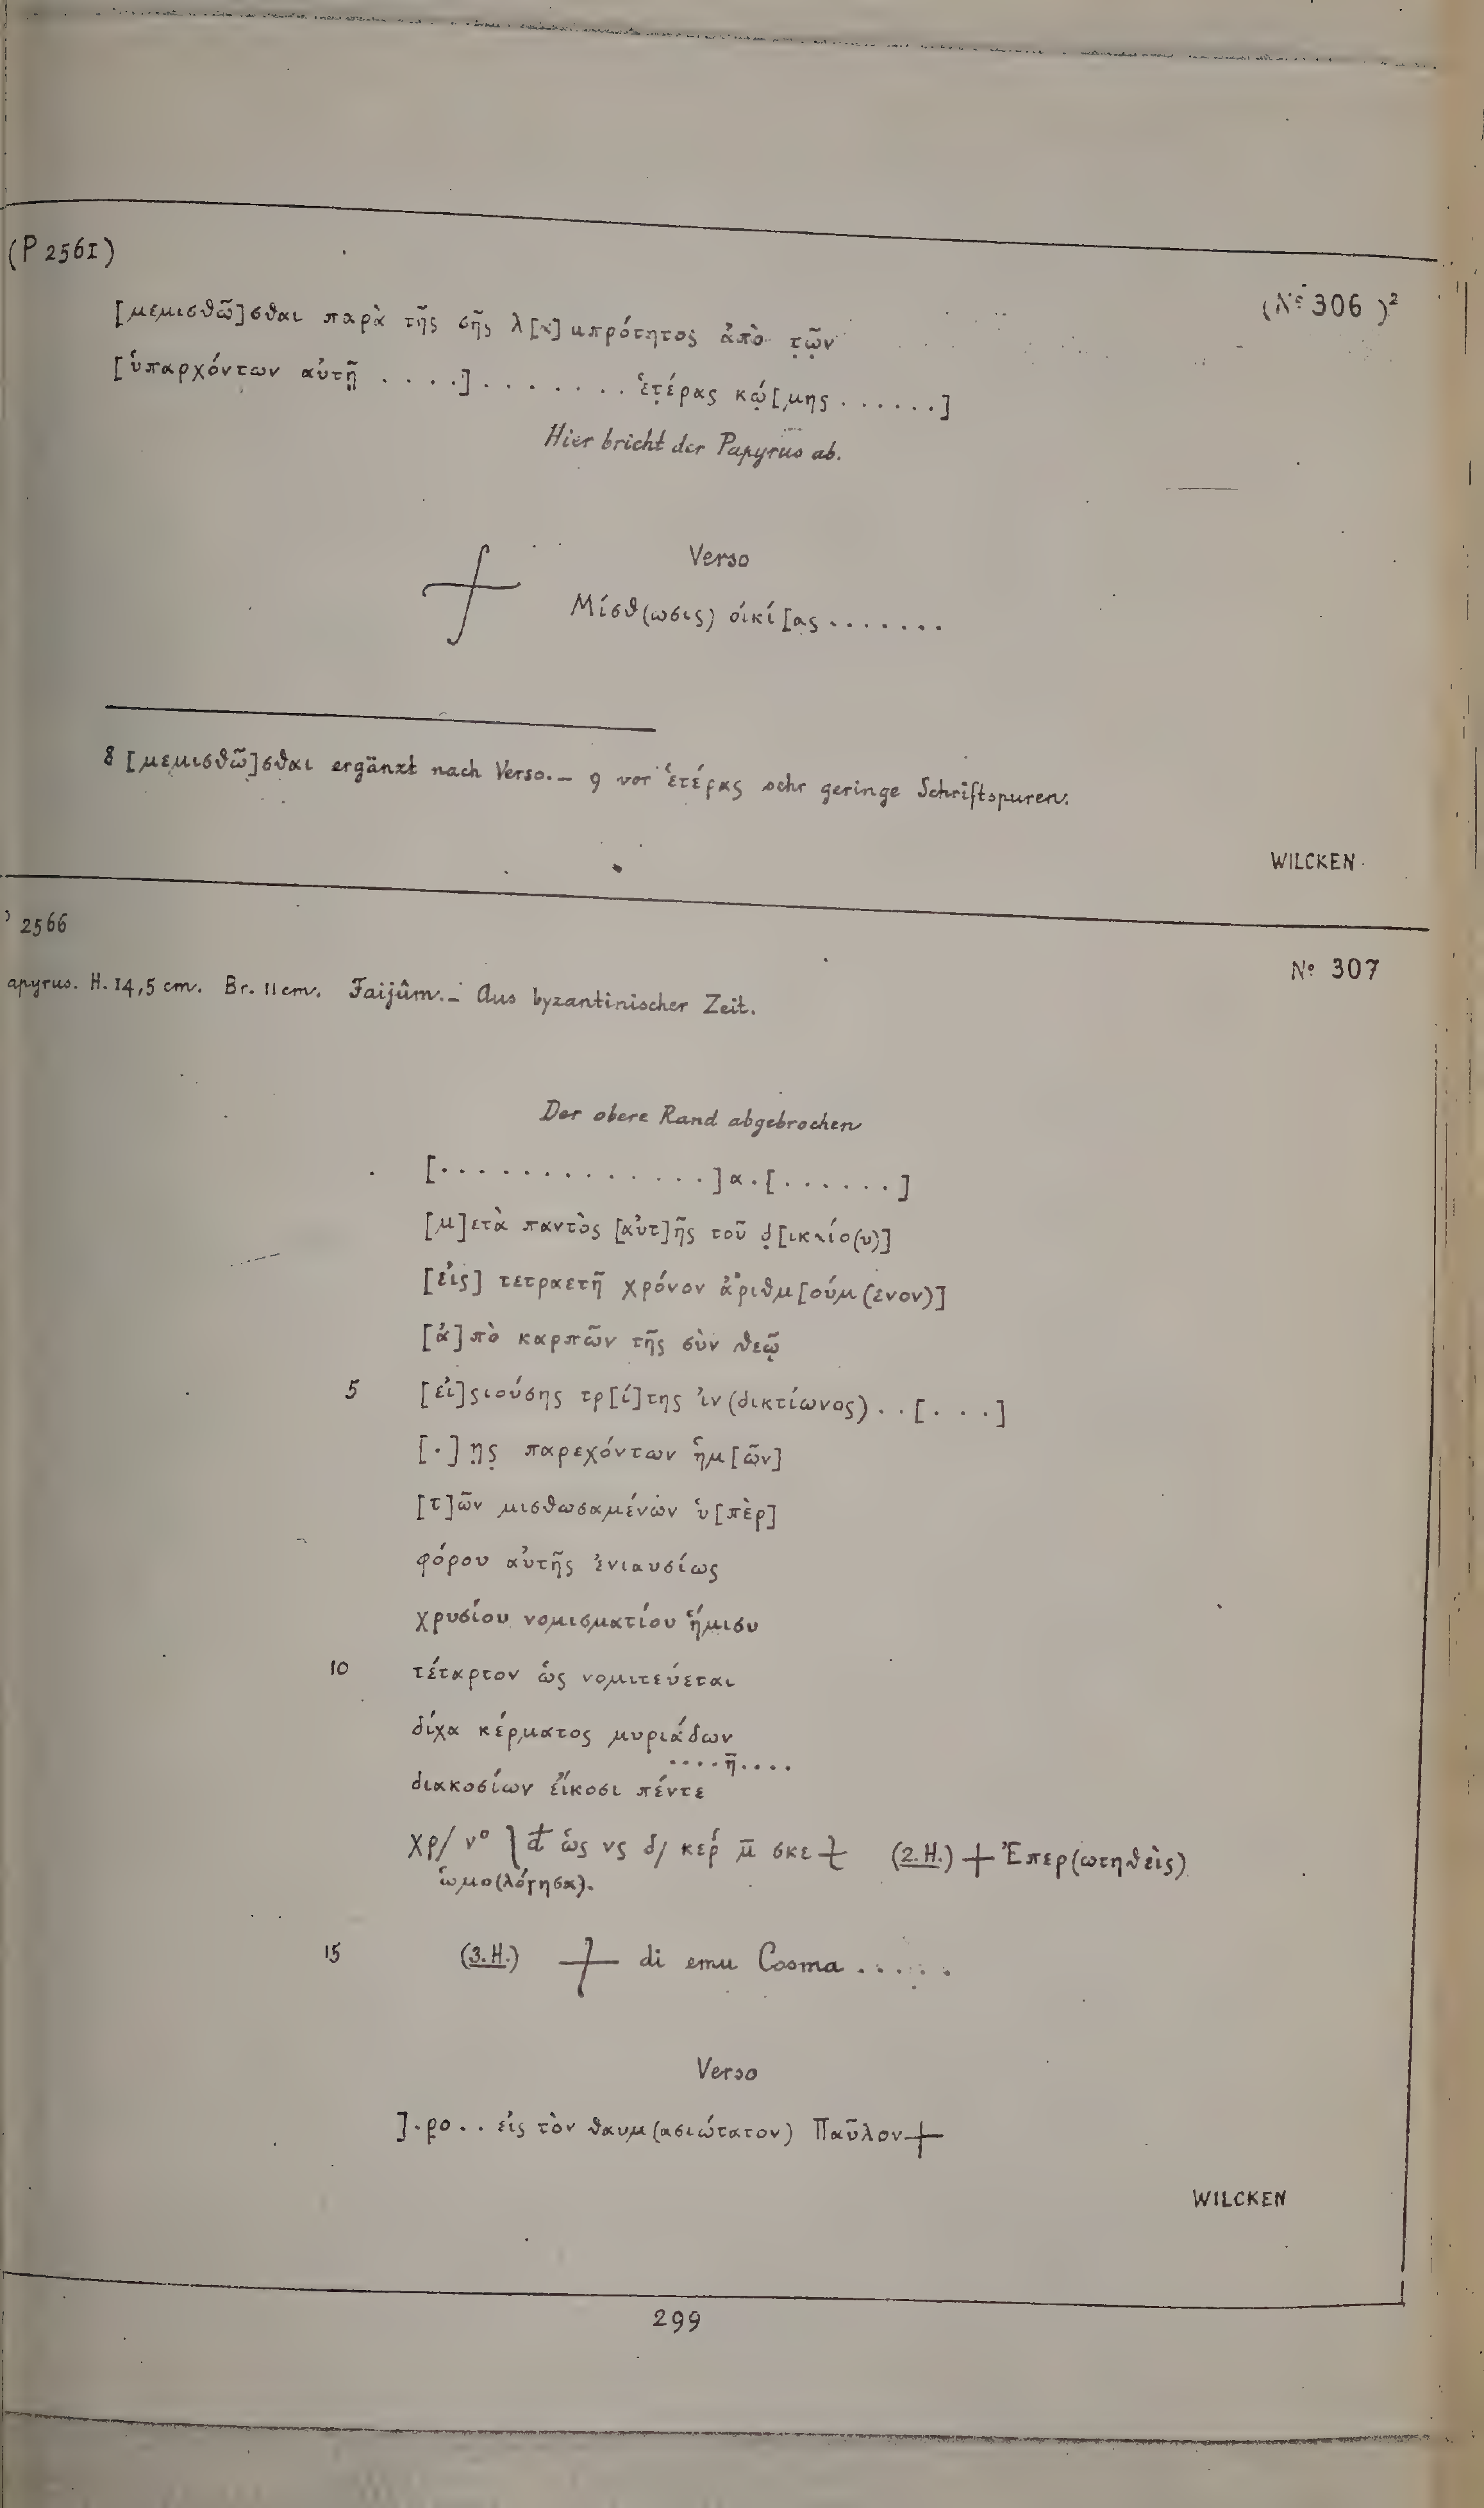 (P 2561)
(Nº 306)²
[μεμισθῶ]σθαι παρὰ τῆς σῆς λ[α]μπρότητος ἀπὸ τ̣ῶ̣ν
[ὑπαρχόντων αὐτῇ . . . .] . . . . . . . ἑτ̣έρας κώ̣[μης . . . . . .]
Hier bricht der Papyrus ab.
Verso
Μίσθ(ωσις) οἰκί[ας . . . . . . .
8 [μεμισθῶ]σθαι ergänzt nach Verso. – 9 vor ἑτέρας sehr geringe Schriftspuren.
WILCKEN
2566
Nº 307
apyrus. H. 14,5 cm. Br. 11 cm. Faijûm. – Aus byzantinischer Zeit.
Der obere Rand abgebrochen
[. . . . . . . . . . . . . .]α.[. . . . . .]
[μ]ετὰ παντὸς [αὐτ]ῆς τοῦ δ̣[ικαίο(υ)]
[εἰς] τετραετῆ χρόνον ἀριθμ[ούμ(ενον)]
[ἀ]πὸ καρπῶν τῆς σὺν θεῷ
5 [εἰ]ςιούσης τρ[ί]της ἰν(δικτίωνος) . . [. . .]
[.]η̣ς̣ παρεχόντων ἡμ[ῶν]
[τ]ῶν μισθωσαμένων ὑ[πὲρ]
φόρου αὐτῆς ἐνιαυσίως
χρυσίου νομισματίου ἥμισυ
10 τέταρτον ὡς νομιτεύεται
δίχα κέρματος μυριάδων
. . . . ῆ . . . .
διακοσίων εἴκοσι πέντε
χρ/ νº ⟩ d ὡς νς δ/ κερ μ̅ σκε (2. H.) + Ἐπερ(ωτηθεὶς)
ὡμο(λόγησα).
15 (3. H.) + di emu Cosma . . . . . .
Verso
].ρο . . εἰς τὸν θαυμ(ασιώτατον) Παῦλον +
WILCKEN
299